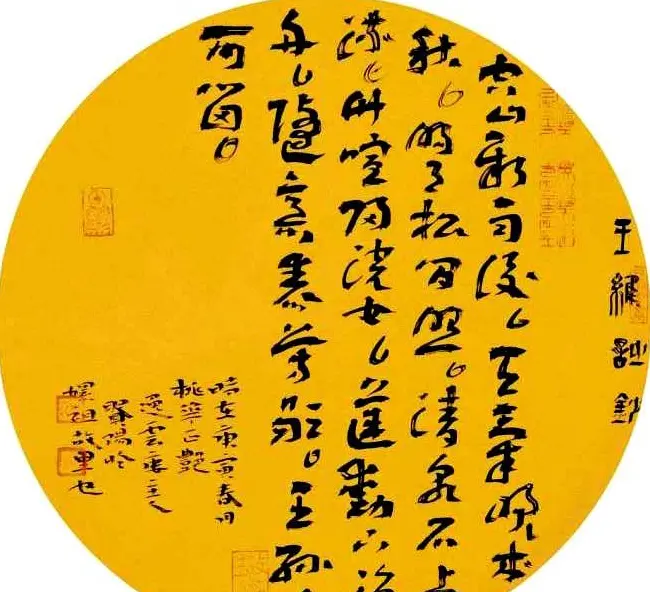 王維詩鈔
空山新雨後天氣晚來
秋明月松間照清泉石上
流竹喧歸浣女蓮動下漁
舟隨意春芳歇王孫
可留
時在庚寅春月
桃華正艷
逸雲庵主人
陽吟
嫘祖故里也